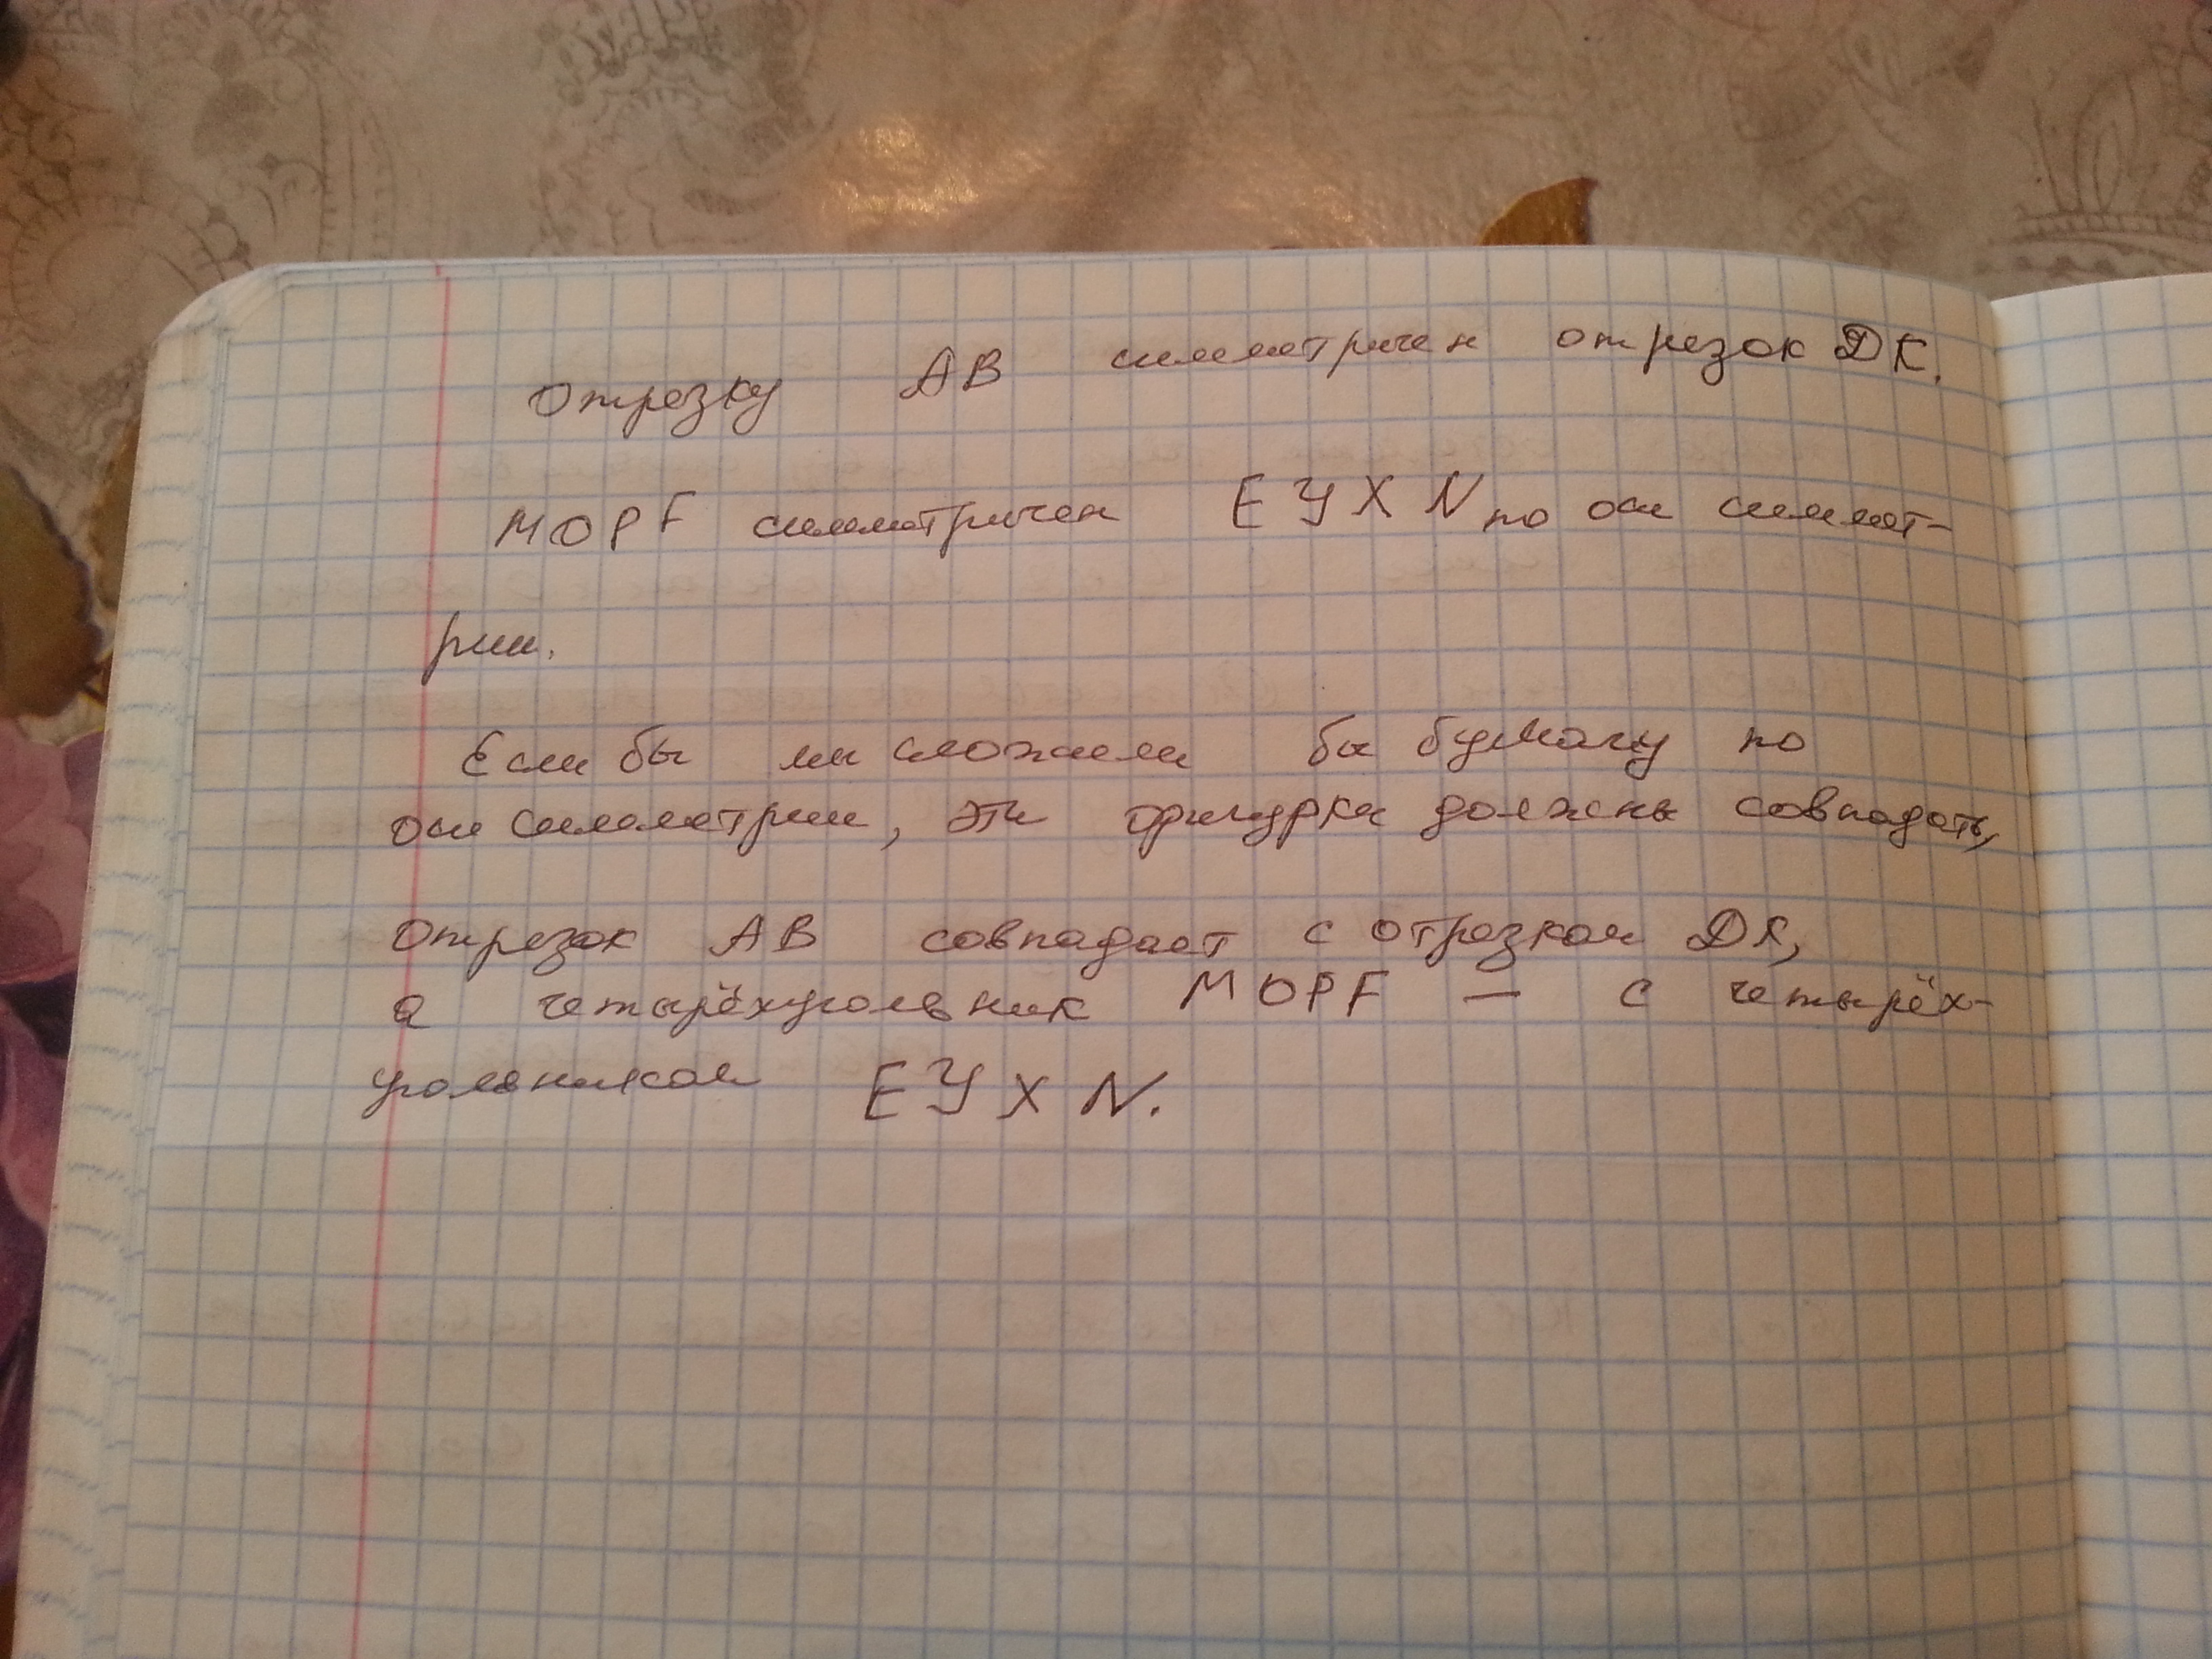 Отрезку АВ симметричен отрезок ДК.
MOPF симметричен EYXN по оси симмет-
рии.
Если бы мы сложили бы бумагу по
оси симметрии, эти фигурки должны совпадать,
Отрезок АВ совпадает с отрезком ДК,
а четырёхугольник MOPF — с четырёх-
угольником EYXN.